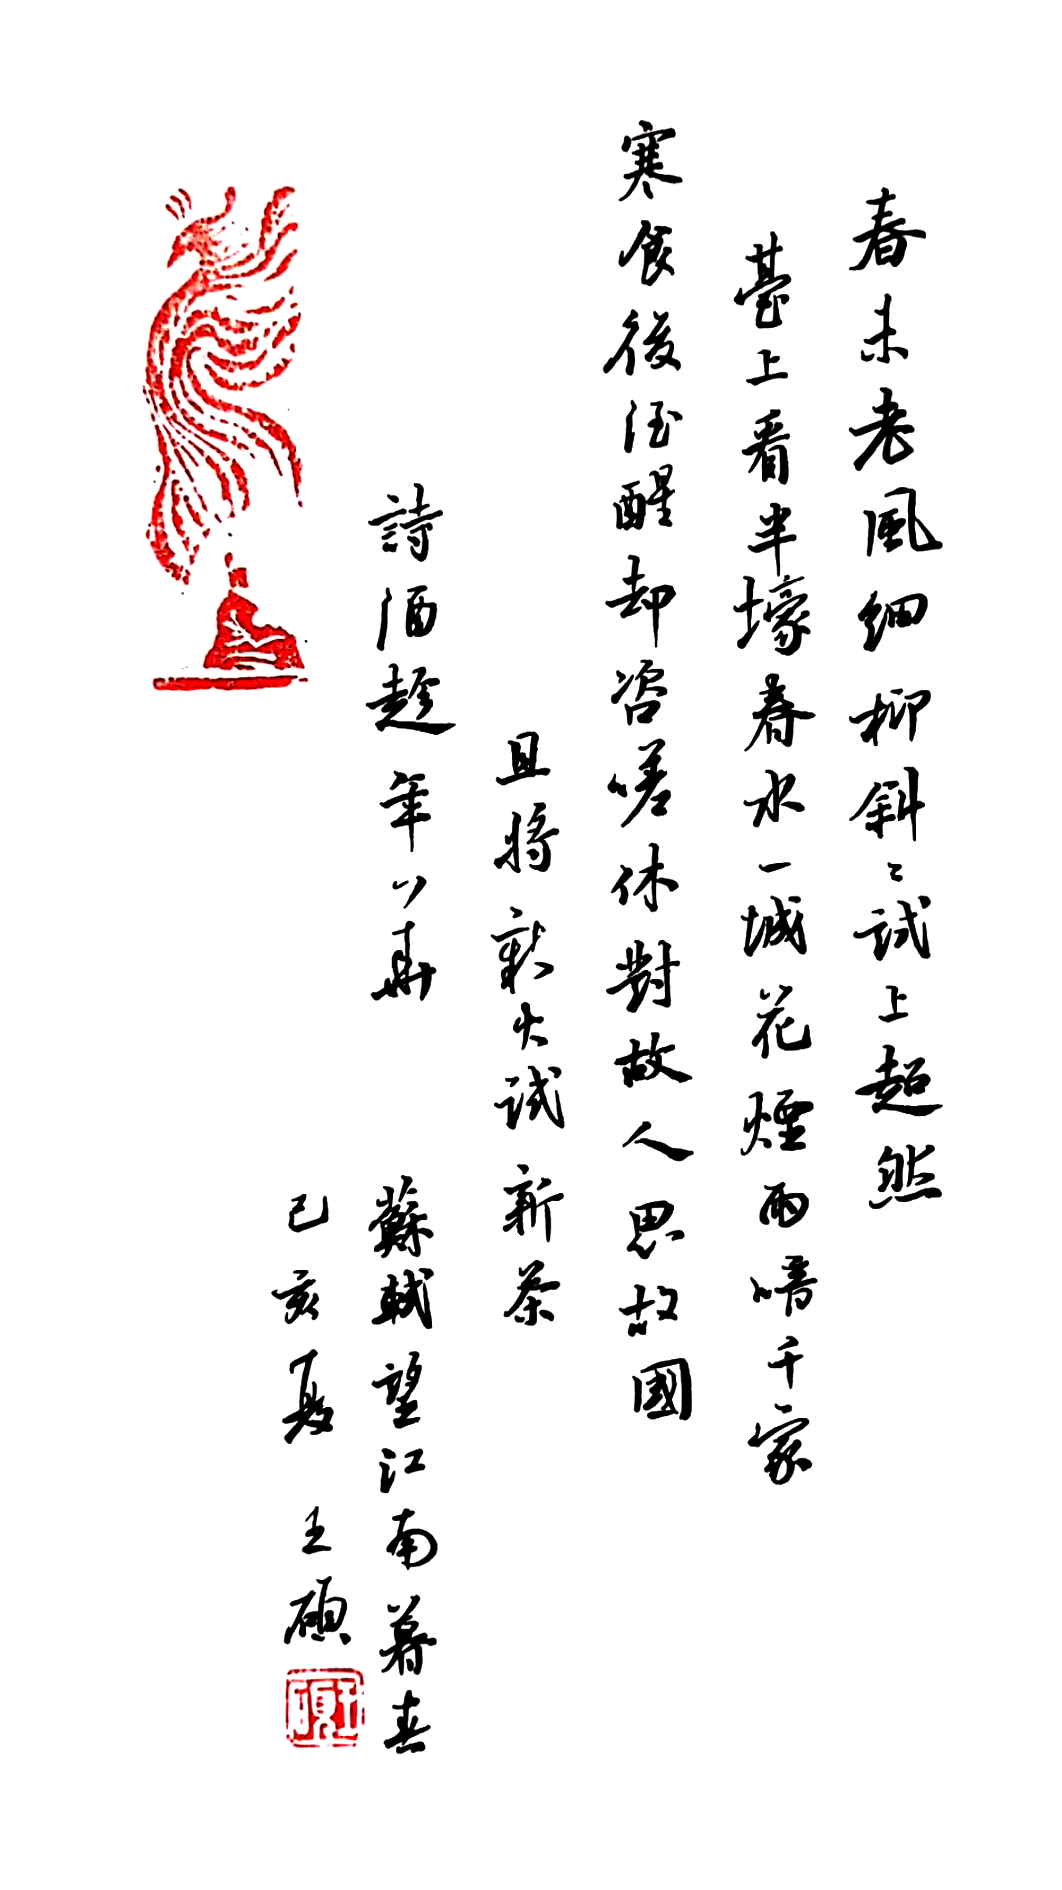 春未老風細柳斜〻試上超然
臺上看半壕春水一城花煙雨暗千家
寒食後酒醒却咨嗟休對故人思故國
且將新火試新茶
詩酒趁年華 蘇軾望江南暮春
己亥夏 王碩
王碩